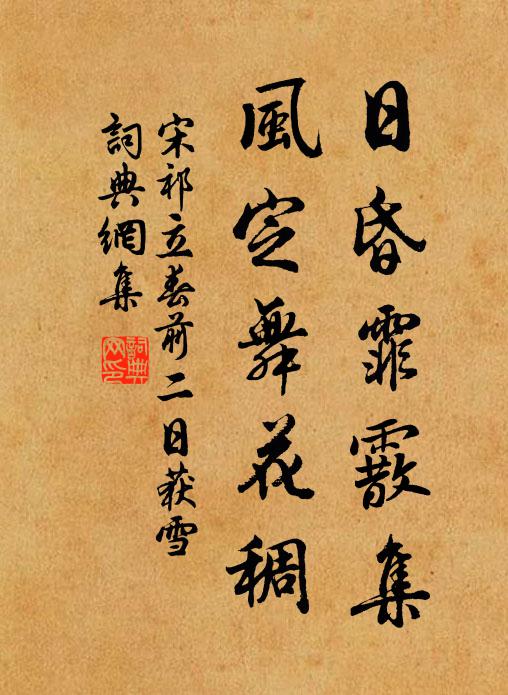 日昏霏霰集
風定舞花稠
宋祁立春前二日获雪
詞典網集
詞典
网印